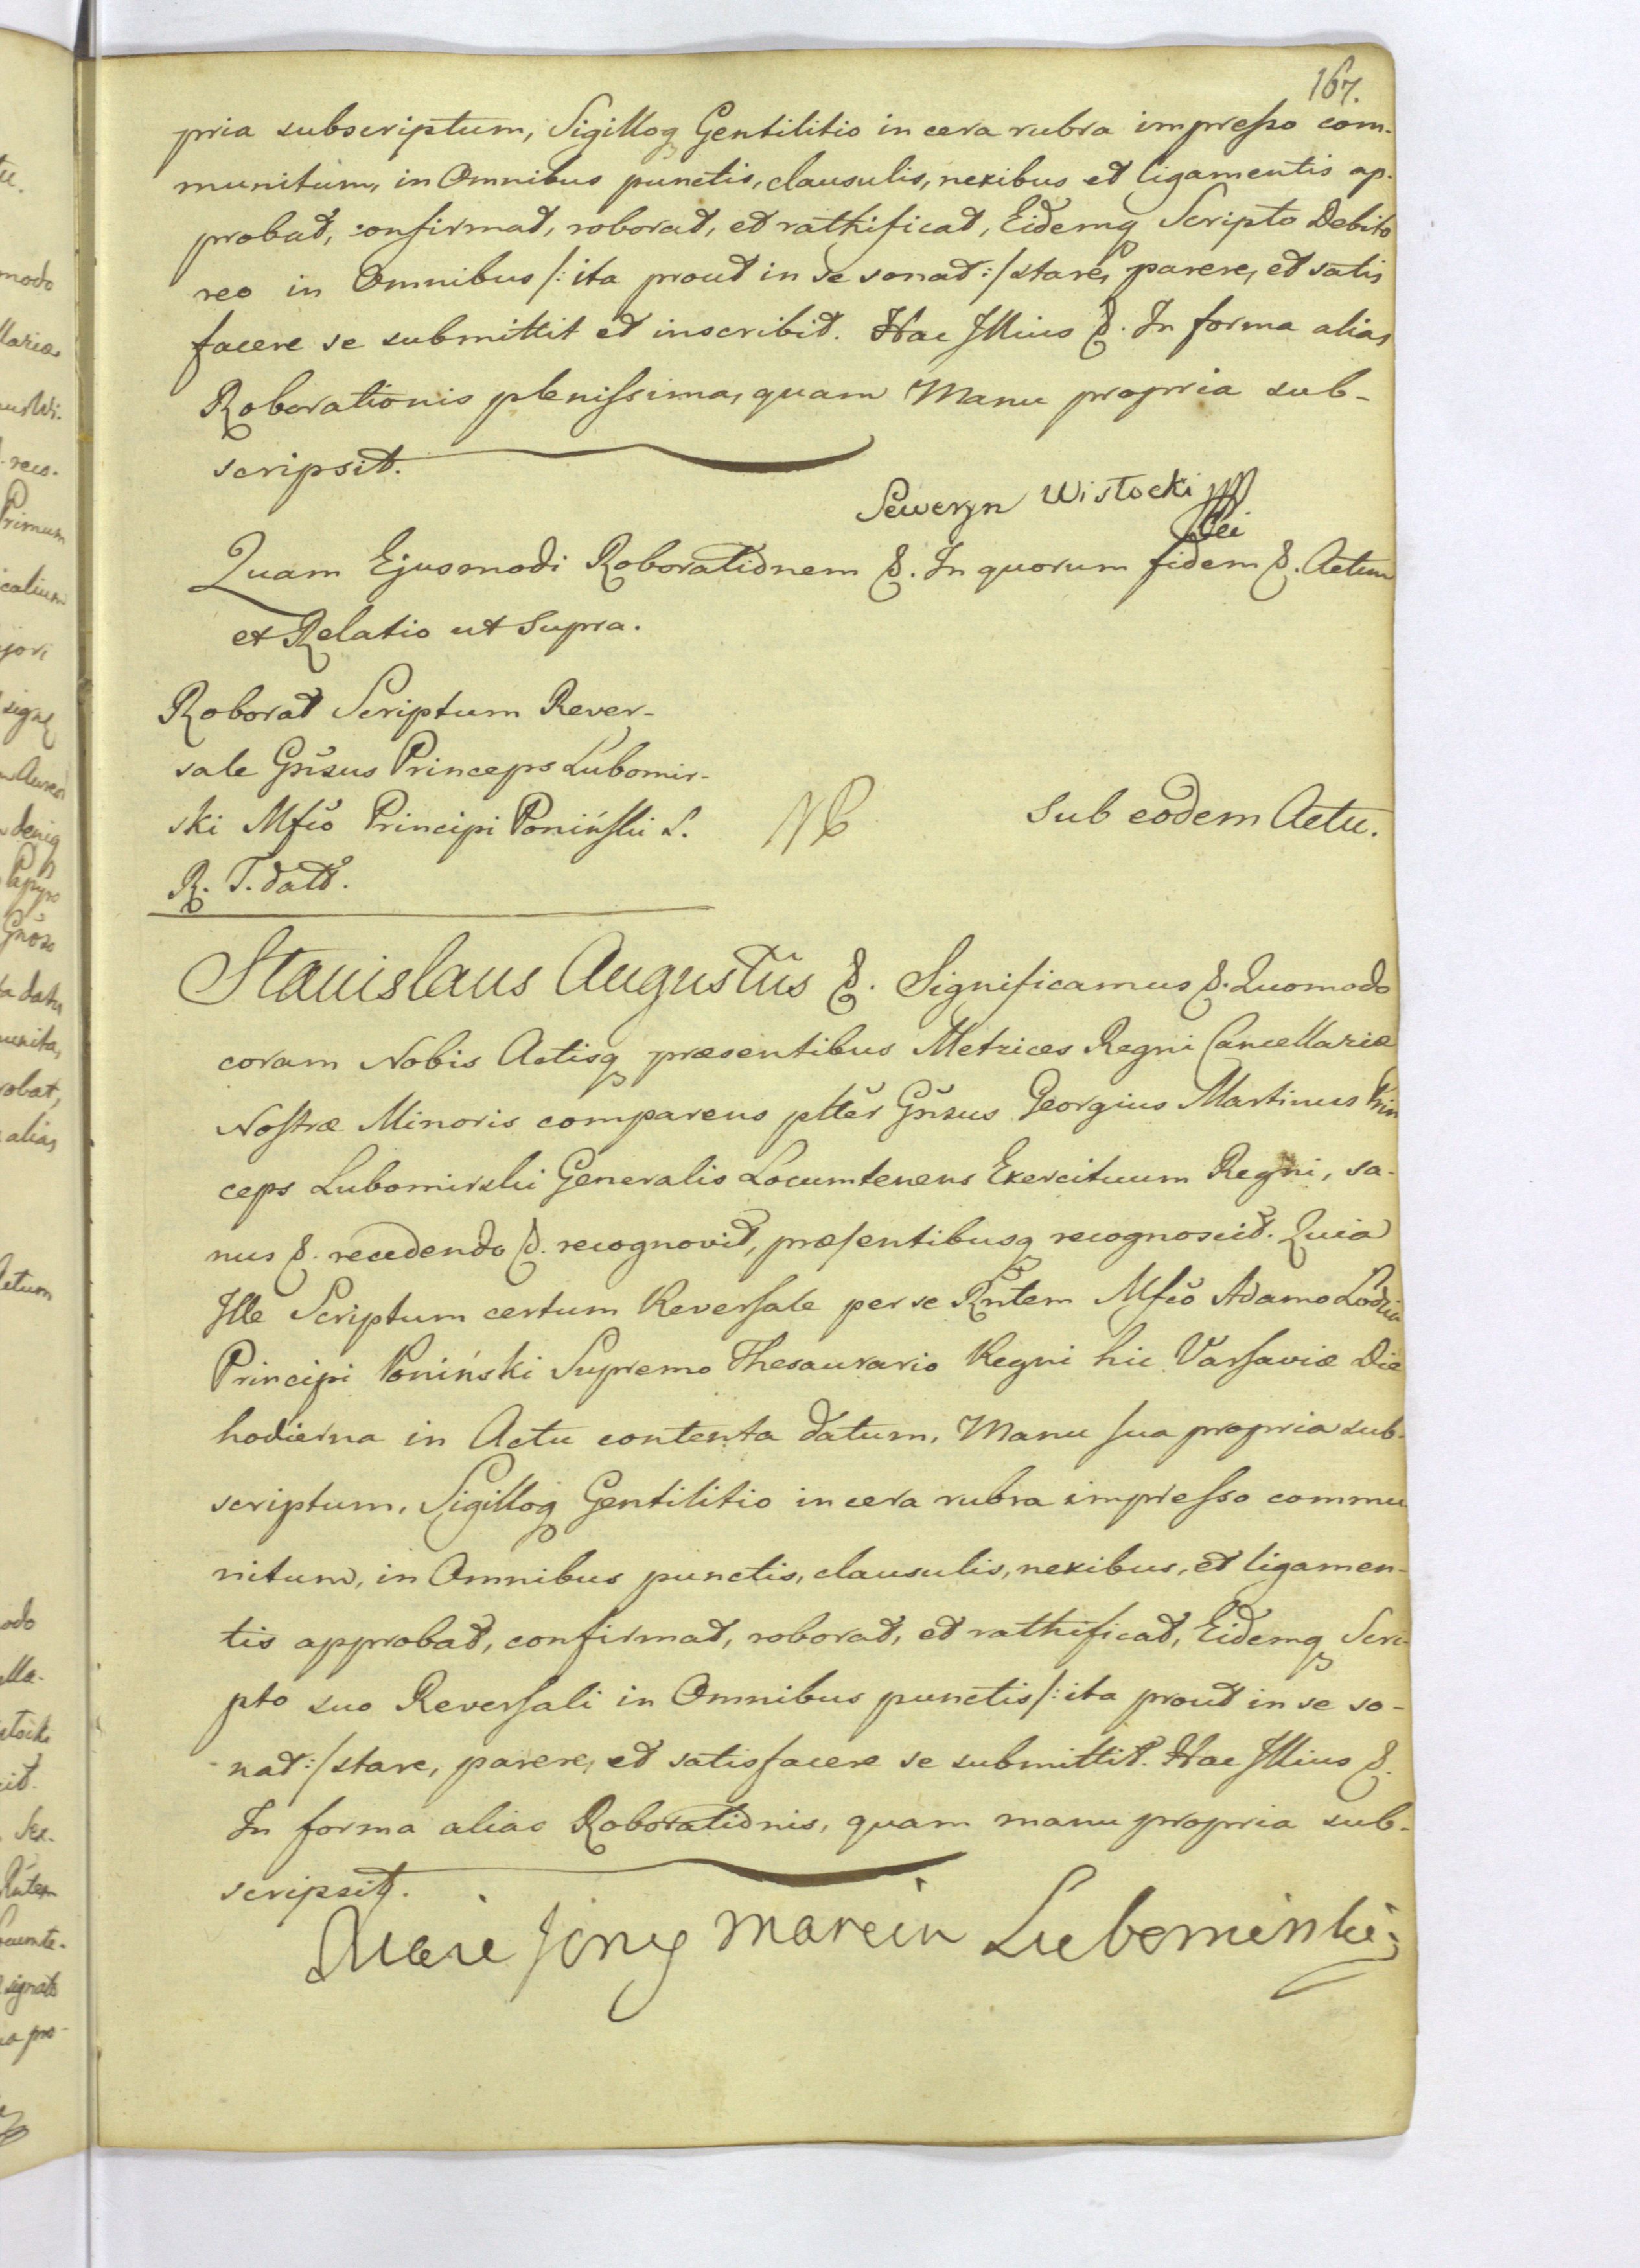 167.
pria subscriptum, Sigilloq Gentilitio in cera rubra impresso com-
munitum, in Omnibus punctis, clausulis, nexibus et ligamentis ap-
probat, confirmat, roborat, et rathificat, Eidemq Scripto Debito
reo in Omnibus /: ita prout in se sonat :/ stare, parere, et satis
facere se submittit et inscribit. Hac Illius &. In forma alias
Roborationis plenissima, quam Manu propria sub-
scripsit.
Seweryn Wisłocki
Quam Ejusmodi Roborationem &. In quorum fidem &. Actum
et Relatio ut Supra.
Roborat Scriptum Rever-
sale Gnsus Princeps Lubomir-
ski Mfco Principi Poniński S.
R. T. datt.
NB
Sub eodem Actu.
Stanislaus Augustus &. Significamus &. Quomodo
coram Nobis Actisq præsentibus Metrices Regni Cancellariæ
Nostræ Minoris comparens plter Gnsus Georgius Martinus Prin
ceps Lubomirski Generalis Locumtenens Exercituum Regni, sa-
nus &. recedendo &. recognovit, præsentibusq recognoscit. Quia
Ille Scriptum certum Reversale per se Rntem Mfco Adamo Lodzia
Principi Poniński Supremo Thesaurario Regni hic Varsaviæ Die
hodierna in Actu contenta datum, Manu sua propria sub-
scriptum, Sigilloq Gentilitio in cera rubra impresso commu
nitum, in Omnibus punctis, clausulis, nexibus, et ligamen-
tis approbat, confirmat, roborat, et rathificat, Eidemq Scri-
pto suo Reversali in Omnibus punctis /: ita prout in se so-
nat :/ stare, parere, et satisfacere se submittit. Hac Illius &.
In forma alias Roborationis, quam manu propria sub-
scripsit.
Xiąże Jerzy Marcin Lubomirski